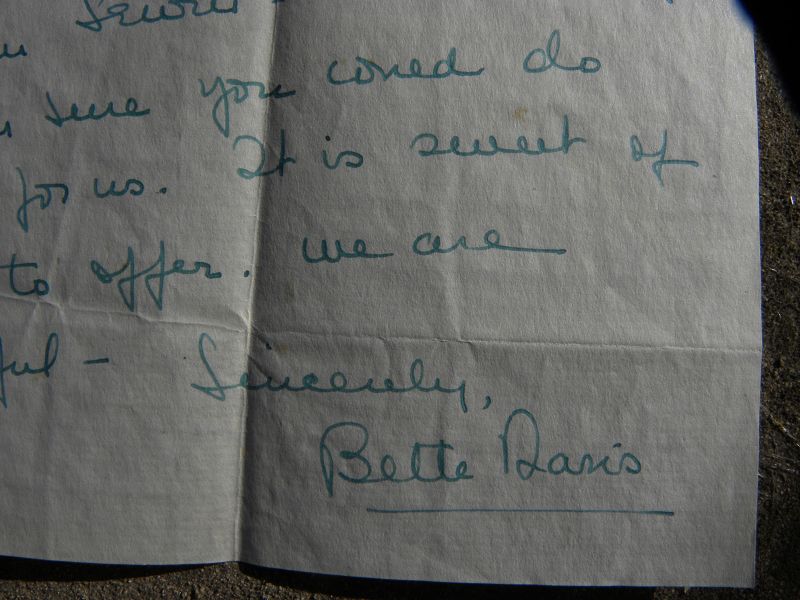 sure you could do
for us. It is sweet of
to offer. We are
ful - Sincerely,
Bette Davis